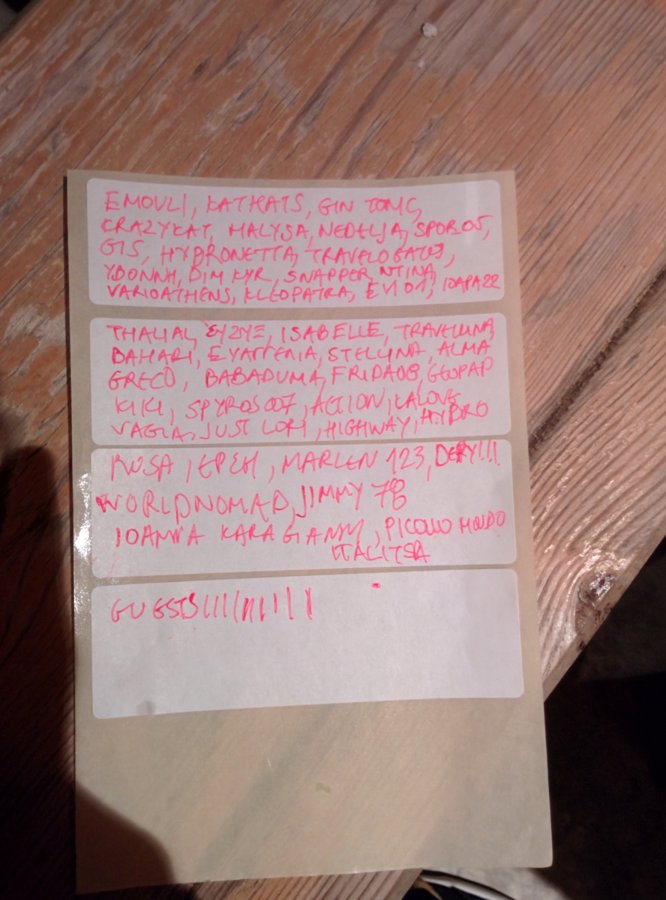 EMOVLI, KATKATS, GIN TONIC,
CRAZYKAT, MALYSA, NEDELJA, SPOROS,
GIS, HYBRONETTA, TRAVELOGATOS,
YDONNH, DIM KYR, SNAPPER NTINA,
VARIOATHENS, KLEOPATRA, EVI 01, IOAPA22
THALIAL, ISABELLE, TRAVELLINA,
BAHARI, STELLINA, ALMA
GRECO, BABADUMA, FRIDA08, GEOPAP
KIKI, SPYROS 007, ACTION, LALOVE
VAGIA, JUST LORI, HIGHWAY, HYDRO
ROSA, MARLEN 123,
WORLDNOMAD, JIMMY 78
IOANNA KARAGIANNI, PICOLLO MONDO
ITALITSA
GUESTS |||||||||